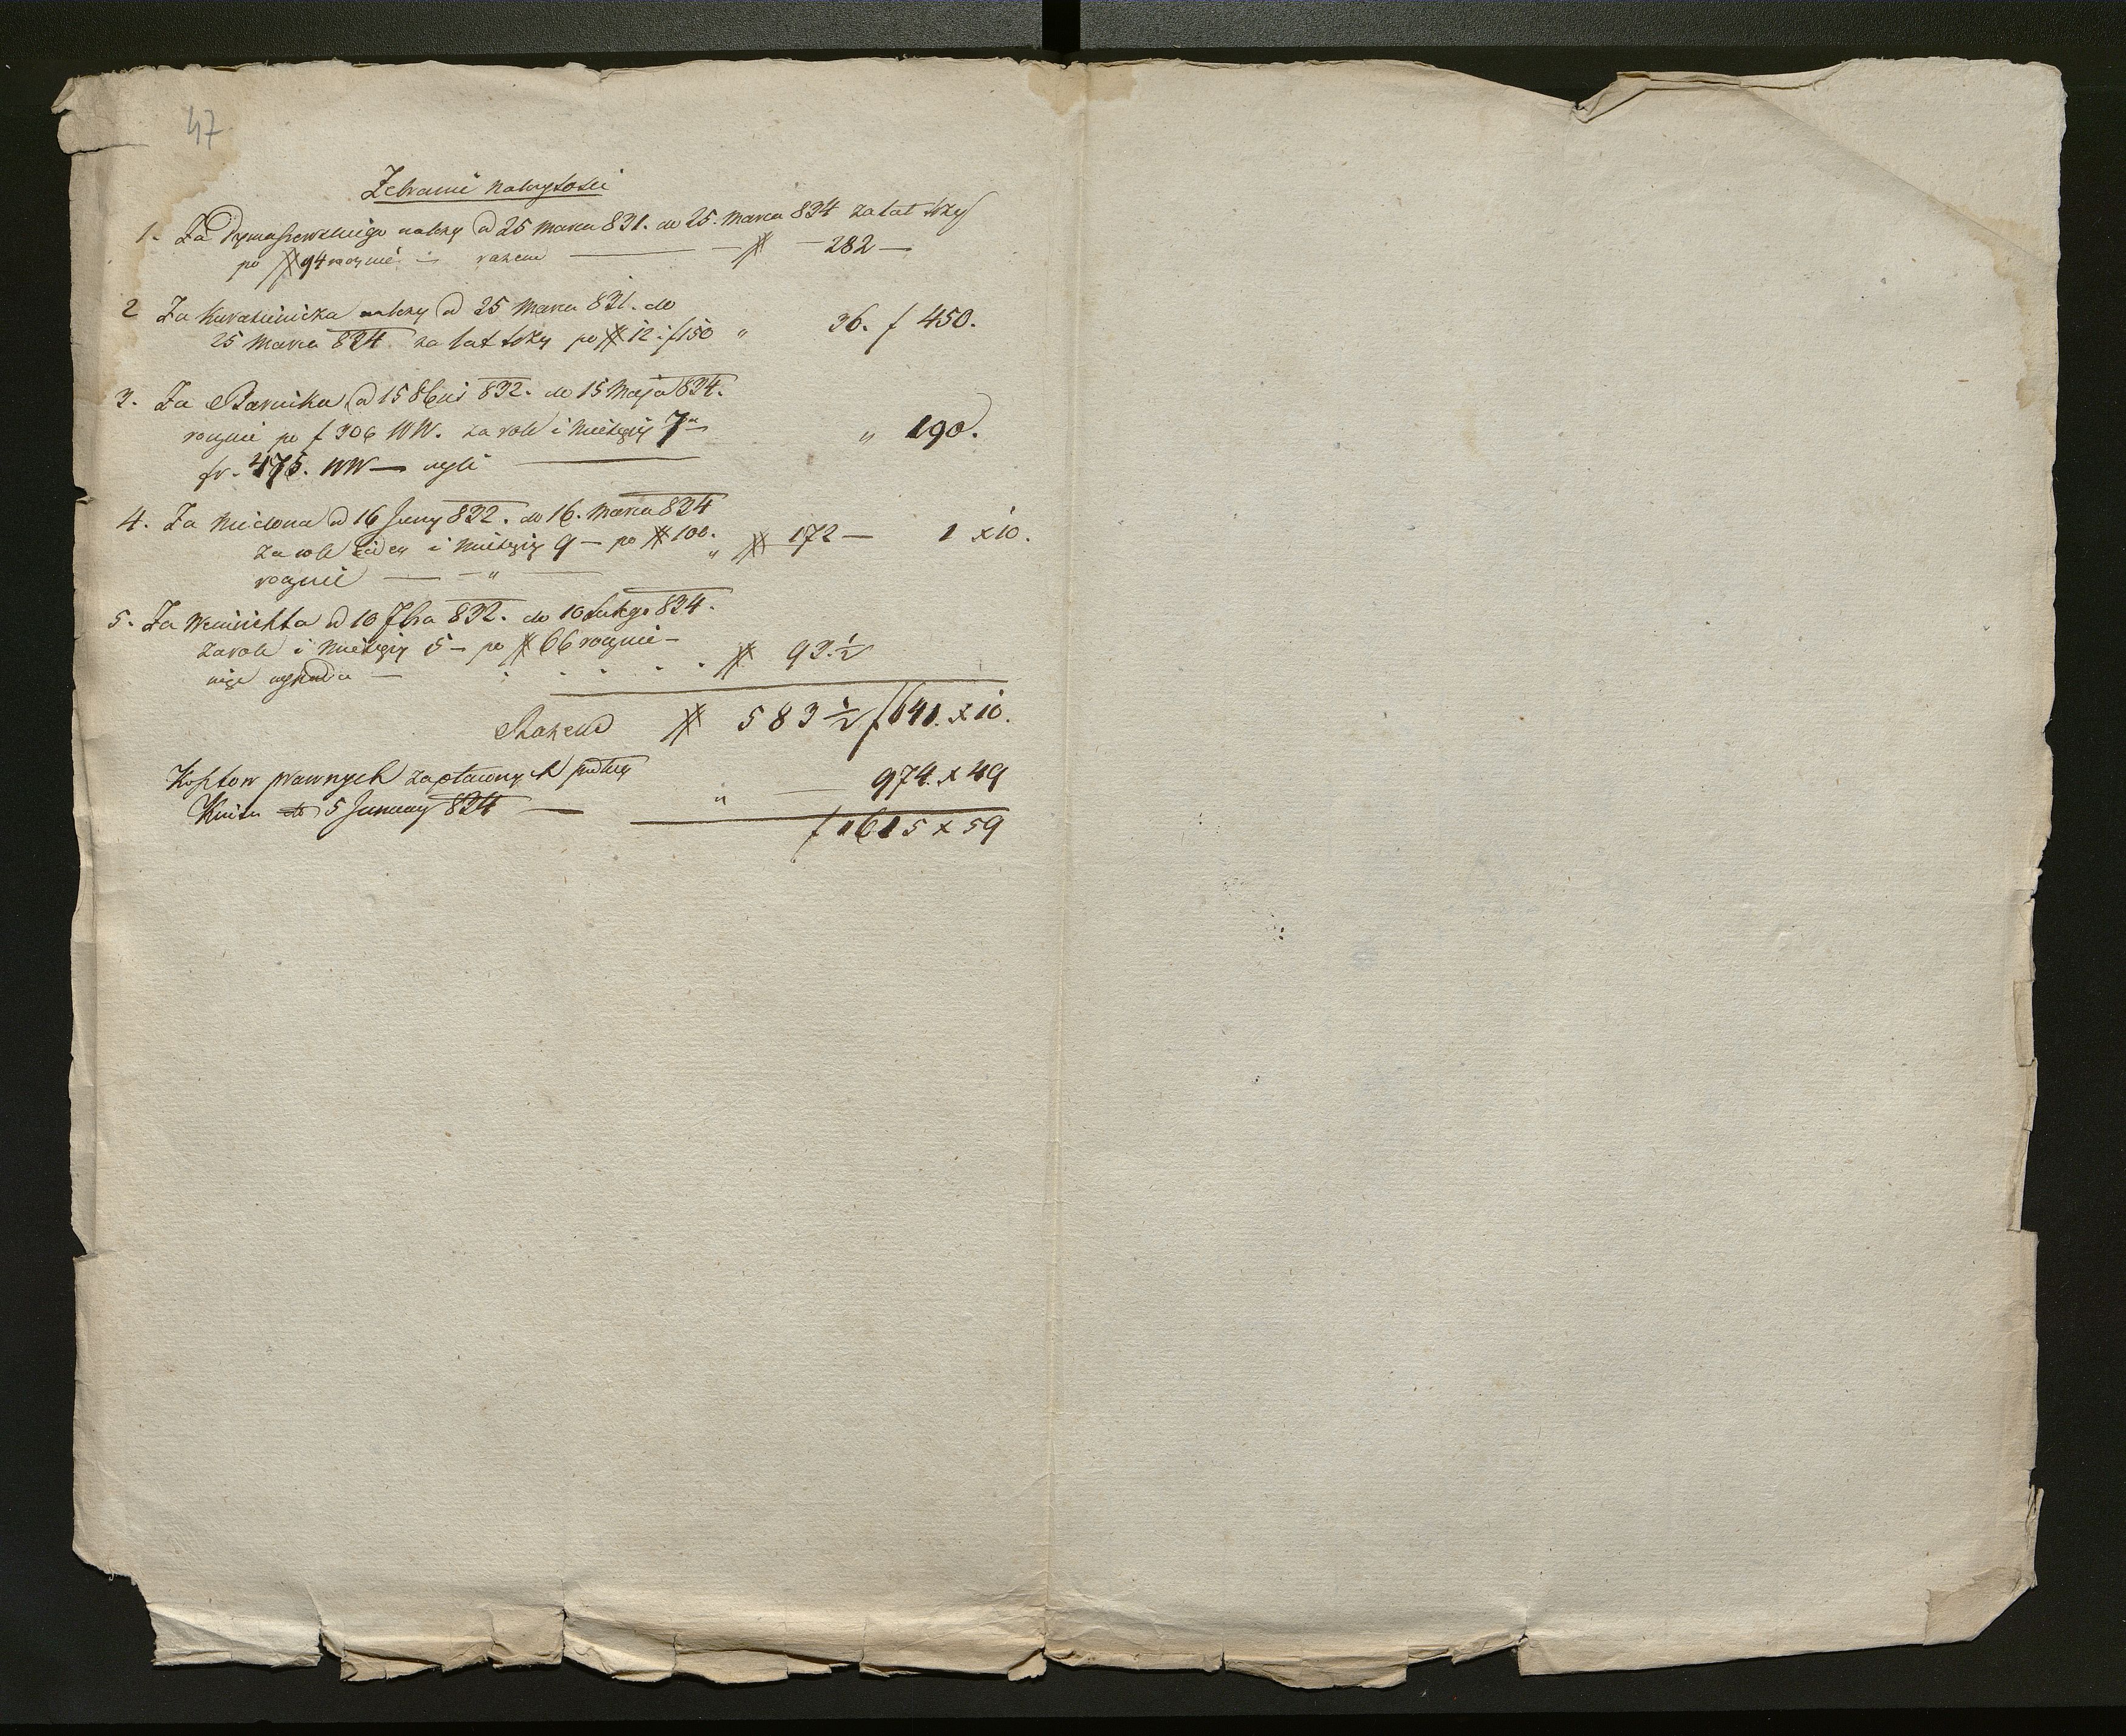 47
Zebranie należytości
1. Za Rymaszewskiego należy od 25 Marca 831. do 25. Marca 834 za lat trzy
po # 94 rocznie razem — # — 282 —
2 Za Kurasienicka należy od 25 Marca 831. do
25 Marca 834 za lat trzy po # 12. f 150 " 36. f 450.
3. Za Barnika od 15 8bris 832. do 15 Maja 834.
rocznie po f 306 WW. za rok i Miesięcy 7 " 190.
fr. 475. WW — czyli —
4. Za Miclona od 16 Juny 832. do 16. Marca 834
za rok i Miesięcy 9 — po # 100. " # 172 — 1 x 10.
rocznie — — " —
5. Za Weinichta od 10 7bra 832. do 10 Lutego 834.
za rok i Miesięcy 5 — po # 66 rocznie —
więc wypada — . . . . # 93. ½
Razem # 583 ½ f 641. x 10.
Kosztow prawnych zapłaconych podług
974. x 49
Kwitu do 5 January 834 — " —
f 1615 x 59